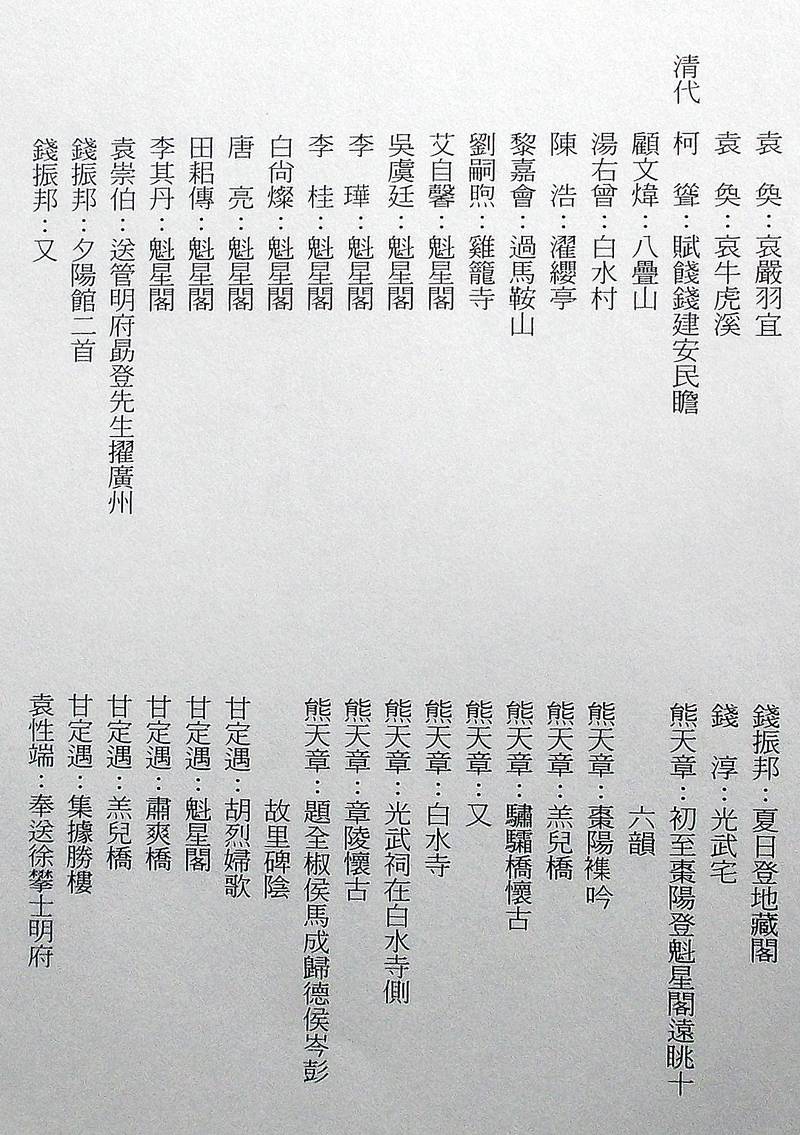 袁　奐：哀嚴羽宜
袁　奐：哀牛虎溪
清代　柯　聳：賦餞錢建安民瞻
顧文煒：八疊山
湯右曾：白水村
陳　浩：濯纓亭
黎嘉會：過馬鞍山
劉嗣煦：雞籠寺
艾自馨：魁星閣
吳虞廷：魁星閣
李　瑋：魁星閣
李　桂：魁星閣
白尙燦：魁星閣
唐　亮：魁星閣
田耜傳：魁星閣
李其丹：魁星閣
袁崇伯：送管明府勗登先生擢廣州
錢振邦：夕陽館二首
錢振邦：又
錢振邦：夏日登地藏閣
錢　淳：光武宅
熊天章：初至棗陽登魁星閣遠眺十
六韻
熊天章：棗陽襍吟
熊天章：羔兒橋
熊天章：驌驦橋懷古
熊天章：又
熊天章：白水寺
熊天章：光武祠在白水寺側
熊天章：章陵懷古
熊天章：題全椒侯馬成歸德侯岑彭
故里碑陰
甘定遇：胡烈婦歌
甘定遇：魁星閣
甘定遇：肅爽橋
甘定遇：羔兒橋
甘定遇：集據勝樓
袁性端：奉送徐攀士明府